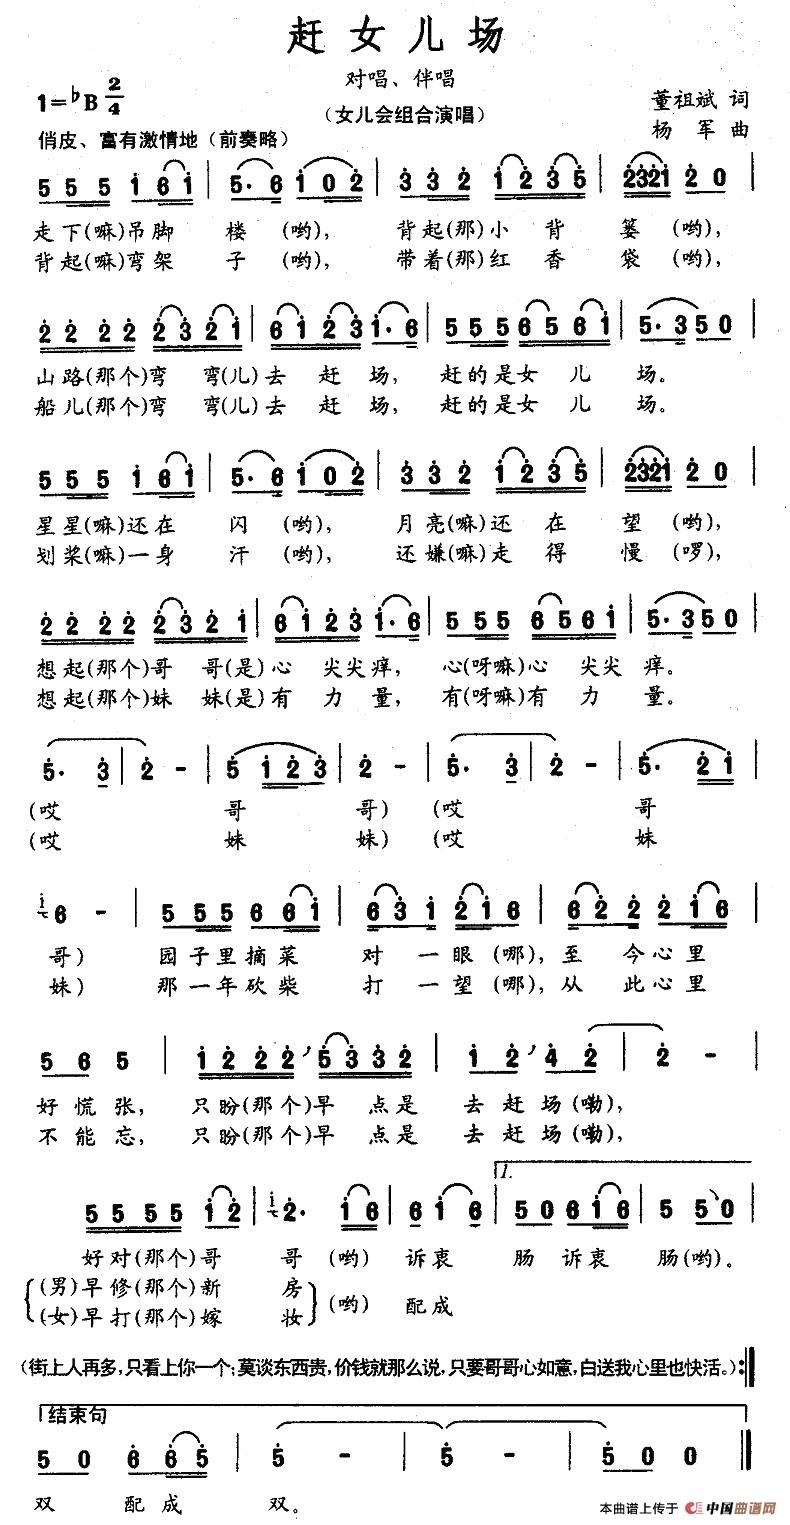 赶女儿场
对唱、伴唱
1=♭B 2/4
（女儿会组合演唱）
董祖斌 词
杨 军 曲
俏皮、富有激情地（前奏略）
5 5 5 1 6 1 | 5· 6 1 0 2 | 3 3 2 1 2 3 5 | 2321 2 0 |
走下(嘛)吊脚 楼 (哟)， 背起(那)小 背 篓 (哟)，
背起(嘛)弯架 子 (哟)， 带着(那)红 香 袋 (哟)，
2 2 2 2 2 3 2 1 | 6 1 2 3 1· 6 | 5 5 5 6 5 6 1 | 5· 3 5 0 |
山路(那个)弯 弯(儿)去 赶 场， 赶的是女 儿 场。
船儿(那个)弯 弯(儿)去 赶 场， 赶的是女 儿 场。
5 5 5 1 6 1 | 5· 6 1 0 2 | 3 3 2 1 2 3 5 | 2321 2 0 |
星星(嘛)还在 闪 (哟)， 月亮(嘛)还 在 望 (哟)，
划桨(嘛)一身 汗 (哟)， 还嫌(嘛)走 得 慢 (啰)，
2 2 2 2 2 3 2 1 | 6 1 2 3 1· 6 | 5 5 5 6 5 6 1 | 5· 3 5 0 |
想起(那个)哥 哥(是)心 尖尖痒， 心(呀嘛)心 尖尖 痒。
想起(那个)妹 妹(是)有 力 量， 有(呀嘛)有 力 量。
5· 3 | 2 - | 5 1 2 3 | 2 - | 5· 3 | 2 - | 5· 2 1 |
(哎 哥 哥) (哎 哥
(哎 妹 妹) (哎 妹
i 6 - | 5 5 5 6 6 1 | 6 3 1 2 1 6 | 6 2 2 2 1 6 |
哥) 园子里摘菜 对 一眼(哪)， 至 今心里
妹) 那一年砍柴 打 一望(哪)， 从 此心里
5 6 5 | 1 2 2 2 5 3 3 2 | 1 2 4 2 | 2 - |
好慌张， 只盼(那个)早 点是 去赶场(嘞)，
不能忘， 只盼(那个)早 点是 去赶场(嘞)，
1.
5 5 5 5 1 2 | i 2· 1 6 | 6 1 6 | 5 0 6 1 6 | 5 5 0
好对(那个)哥 哥 (哟) 诉衷 肠 诉衷 肠(哟)。
(男)早修(那个)新 房
(女)早打(那个)嫁 妆 (哟) 配成
(街上人再多，只看上你一个；莫谈东西贵，价钱就那么说，只要哥哥心如意，白送我心里也快活。)
结束句
5 0 6 6 5 | 5 - | 5 - | 5 0 0
双 配成 双。
本曲谱上传于 中国曲谱网